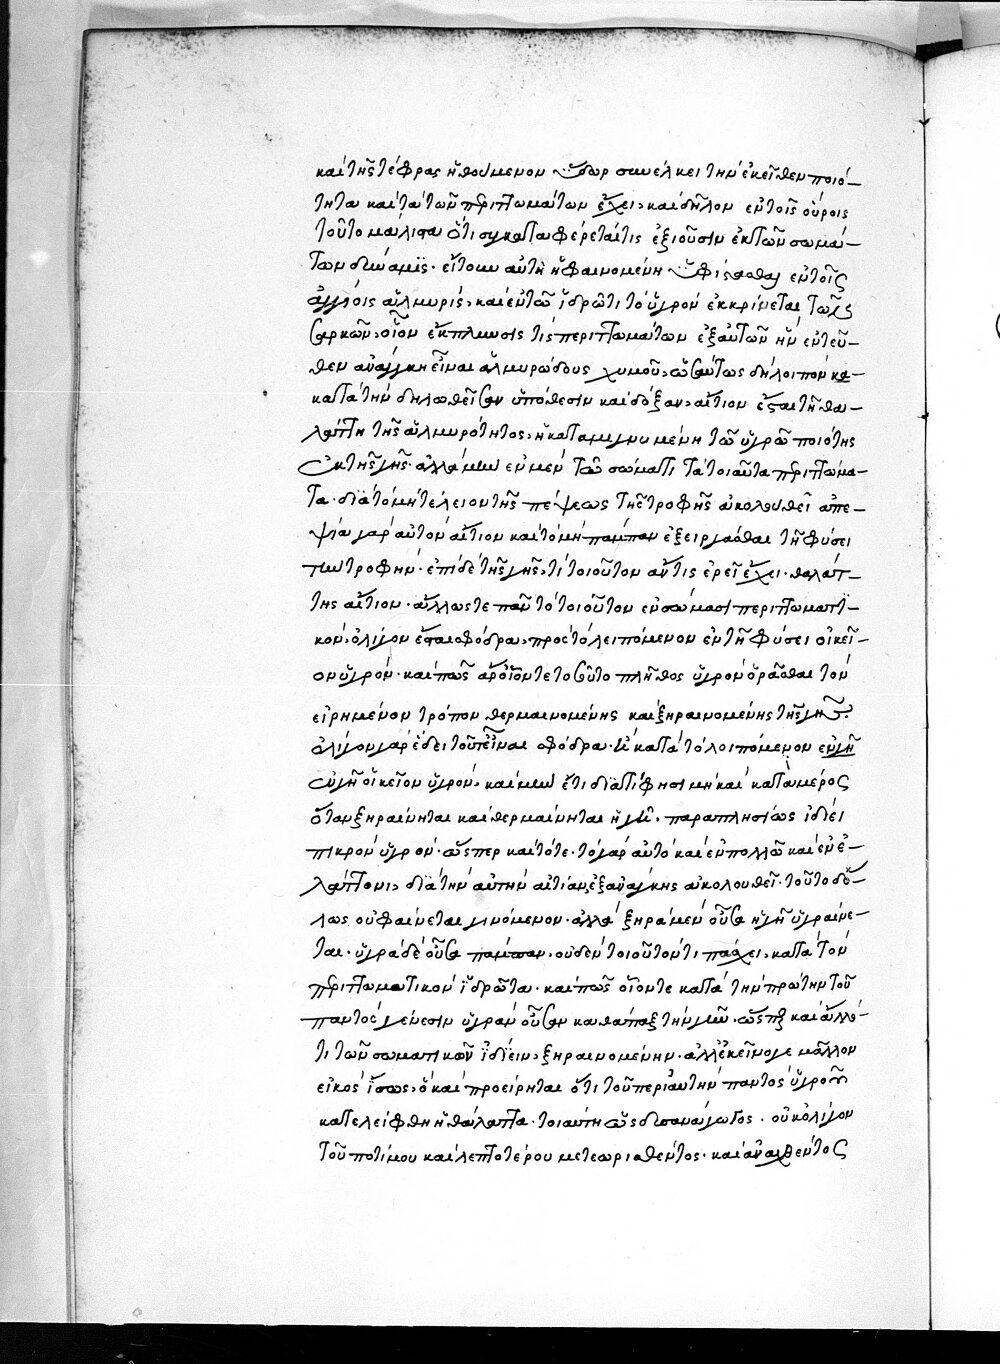 καὶ τῆς τέφρας ἠθούμενον ὕδωρ συνέλκει τὴν ἐκεῖθεν ποιό-
τητα καὶ τὰ τῶν περιττωμάτων ἔχει, καὶ δῆλον ἐν τοῖς οὔροις
τοῦτο μάλιστα ὅτι συγκαταφέρεταί τις ἐξιοῦσιν ἐκ τῶν σωμά-
των δύναμις. εἴτουν αὐτὴ ἡ φαινομένη ὑφίστασθαι ἐν τοῖς
ἀγγείοις ἁλμυρίς, καὶ ἐν τῶ ἱδρῶτι τὸ ὑγρὸν ἐκκρίνεται τῶν
σαρκῶν, οἷον ἔκπλυσίς τις περιττωμάτων ἐξ αὐτῶν ἣν ἐντεῦ-
θεν ἀνάγκη εἶναι ἁλμυρώδους χυμοῦ, ὡσαύτως δήλοιπον κα-
κατὰ τὴν δηλωθεῖσαν ὑπόθεσιν καὶ δόξαν, αἴτιον ἔσται τῆ θα-
λάττη τῆς ἁλμυρότητος, ἡ καταμιγνυμένη τῶ ὑγρῶ ποιότης
ἐκ τῆς γῆς. ἀλλὰ μὴν ἐν μὲν τῶ σώματι τὰ τοιαῦτα περιττώμα-
τα. διὰ τὸ μὴ τέλειον τῆς πέψεως τῆς τροφῆς ἀκολουθεῖ ἀπε-
ψία γὰρ αὐτὸν αἴτιον καὶ τὸ μὴ πάμπαν ἐξειργάσθαι τῆ φύσει
τὴν τροφήν. ἐπὶ δὲ τῆς γῆς, τί τοιοῦτον ἄν τις ἐρεῖ ἔχει. θαλάτ-
της αἴτιον. ἄλλως τε πᾶν τὸ τοιοῦτον ἐν σώμασι περιττωματι-
κὸν, ὀλίγον ἔσται σφόδρα, πρὸς τὸ λειπόμενον ἐν τῆ φύσει οἰκεῖ-
ον ὑγρόν. καὶ πῶς ἂρ οἷόν τε τοσοῦτο πλῆθος ὑγρὸν ὁρᾶσθαι τὸν
εἰρημένον τρόπον θερμαινομένης καὶ ξηραινομένης τῆς γῆς;
ὀλίγον γὰρ ἔδει τοῦτ' εἶναι σφόδρα. κατὰ τὸ λοιπόμενον ἐν γῆ
ἐν γῆ οἰκεῖον ὑγρόν, καὶ μὴν ἔτι διατί φησι μὴ καὶ κατὰ μέρος
ὅταν ξηραίνηται καὶ θερμαίνηται ἡ γῆ, παραπλησίως ἰδίει
πικρὸν ὑγρόν. ὥσπερ καὶ τότε. τὸ γὰρ αὐτὸ καὶ ἐν πολλῶ καὶ ἐν ἐ-
λάττονι, διὰ τὴν αὐτὴν αἰτίαν ἐξ ἀνάγκης ἀκολουθεῖ. τοῦτο δ' ὅ-
λως οὐ φαίνεται γινόμενον. ἀλλὰ ξηρὰ μὲν οὖσα ἡ γῆ ὑγραίνε-
ται. ὑγρὰ δὲ οὖσα πάμπαν, οὐδὲν τοιοῦτόν τι πάσχει, κατὰ τὸν
περιττωματικὸν ἱδρῶτα. καὶ πῶς οἷόν τε κατὰ τὴν πρώτην τοῦ
παντὸς γένεσιν ὑγρὰν οὖσαν καθάπαξ τὴν γῆν. ὥσπερ καὶ ἄλλό-
τι τῶν σωματικῶν ἰδίειν, ξηραινομένην. ἀλλ' ἐκεῖνό γε μᾶλλον
εἰκὸς ἴσως, ὃ καὶ προείρηται ὅτι τοῦ περὶ αὐτὴν παντὸς ὑγροῦ
κατελείφθη ἡ θάλαττα. τοιαύτη ὡς δυσανάγωγος. οὐκ ὀλίγον
τοῦ ποτίμου καὶ λεπτοτέρου μετεωρισθέντος. καὶ ἀναχθέντος